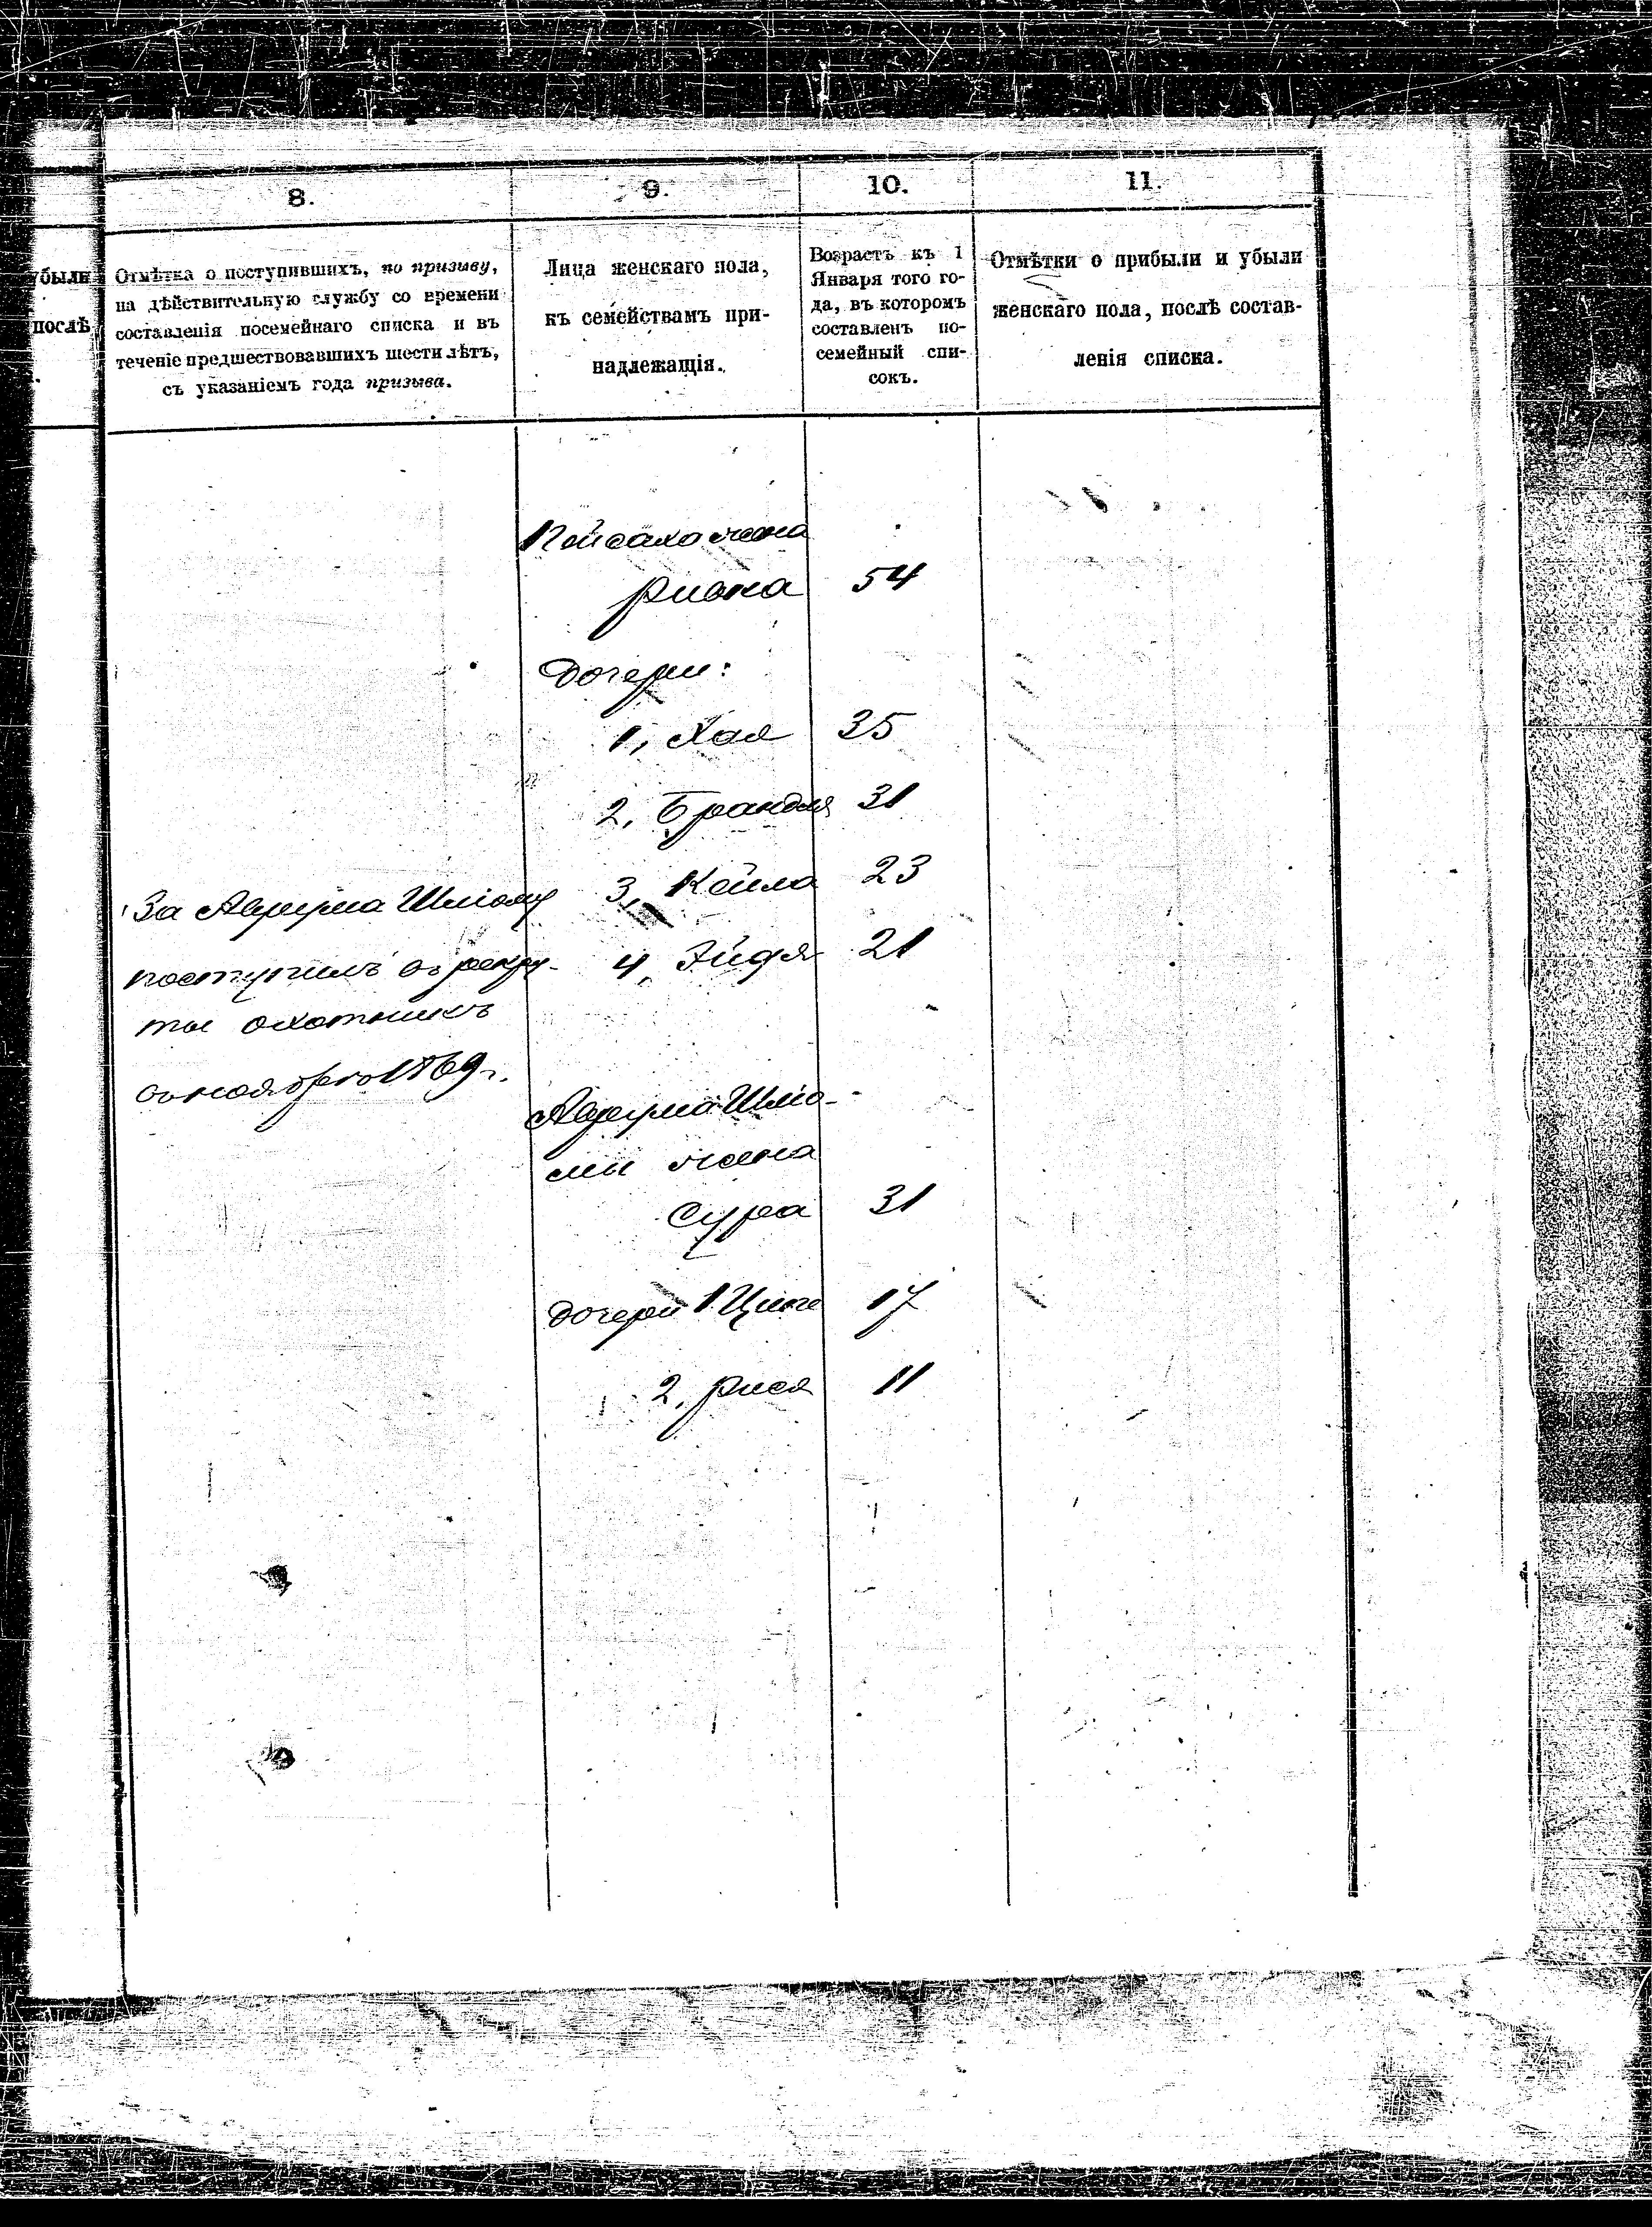 8.
9.
10.
11.
убыли
послѣ
Отмѣтка о поступившихъ, по призыву,
на дѣйствительную службу со времени
составленія посемейнаго списка и въ
теченіе предшествовавшихъ шести лѣтъ,
съ указаніемъ года призыва.
Лица женскаго пола,
къ семействамъ при-
надлежащія.
Возрастъ къ 1
Января того го-
да, въ которомъ
составленъ по-
семейный спи-
сокъ.
Отмѣтки о прибыли и убыли
женскаго пола, послѣ состав-
ленія списка.
Пейсаха жена
54
Дочери:
1, Хая 35
2, Брандля 31
3, Кейла 23
4, Эйдя 21
За Аврума Шліому
поступилъ въ рекру-
ты охотникъ
въ ноябрѣ 1869 г.
Аврума Шліо-
мы жена
Сура 31
дочери 1 17
2, Рися 11